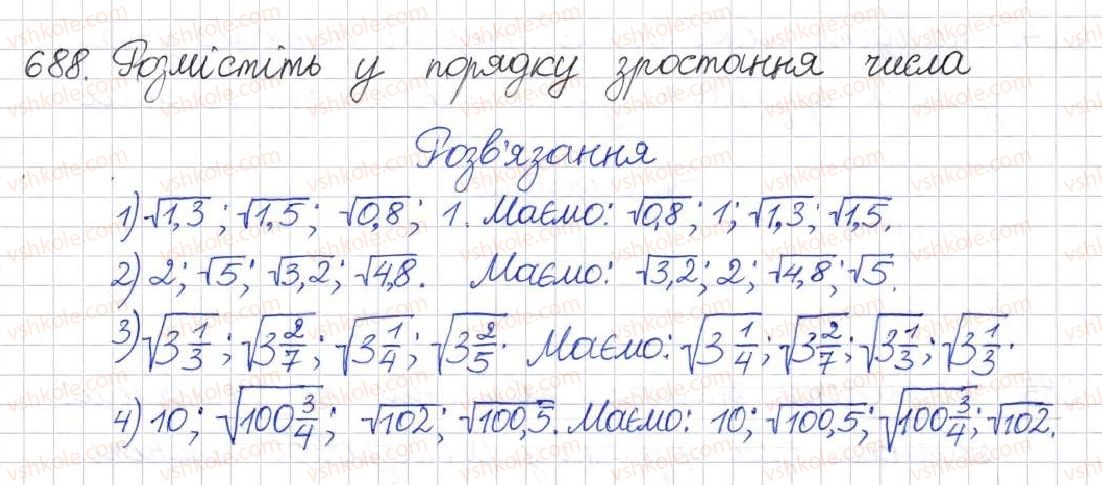 688. Розмістіть у порядку зростання числа
Розв'язання
1) √1,3; √1,5; √0,8; 1. Маємо: √0,8; 1; √1,3; √1,5.
2) 2; √5; √3,2; √4,8. Маємо: √3,2; 2; √4,8; √5.
3) √3 1/3; √3 2/7; √3 1/4; √3 2/5. Маємо: √3 1/4; √3 2/7; √3 1/3; √3 1/3.
4) 10; √100 3/4; √102; √100,5. Маємо: 10; √100,5; √100 3/4; √102.